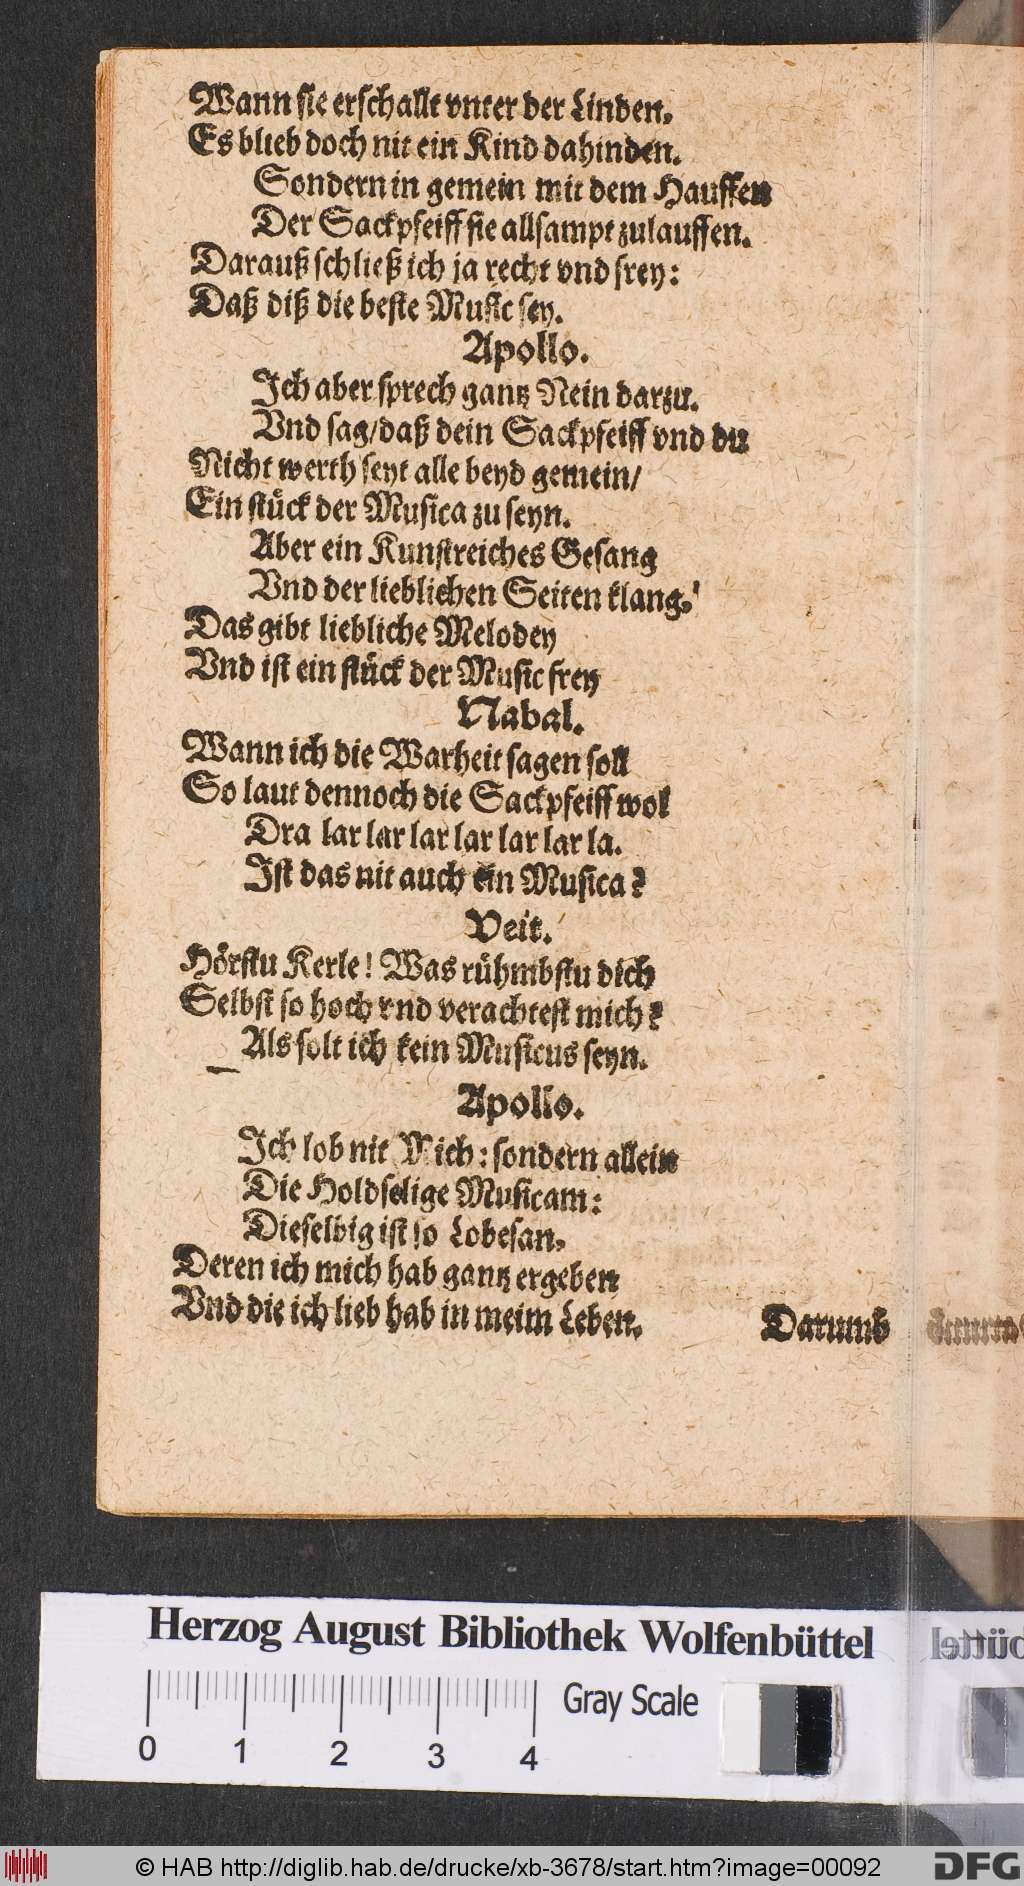 Wann sie erschallt vnter der Linden.
Es blieb doch nit ein Kind dahinden.
Sondern in gemein mit dem Hauffen
Der Sackpfeiff sie allsampt zulauffen.
Darauß schließ ich ja recht vnd frey:
Daß diß die beste Music sey.
Apollo.
Ich aber sprech gantz Nein darzu.
Vnd sag/daß dein Sackpfeiff vnd du
Nicht werth seyt alle beyd gemein/
Ein stück der Musica zu seyn.
Aber ein Kunstreiches Gesang
Vnd der lieblichen Seiten klang.
Das gibt liebliche Melodey
Vnd ist ein stück der Music frey
Nabal.
Wann ich die Warheit sagen soll
So laut dennoch die Sackpfeiff wol
Dra lar lar lar lar lar lar la.
Ist das nit auch ein Musica?
Veit.
Hörstu Kerle! Was rühmbstu dich
Selbst so hoch vnd verachtest mich?
Als solt ich kein Musicus seyn.
Apollo.
Ich lob nit Mich: sondern allein
Die Holdselige Musicam:
Dieselbig ist so Lobesan.
Deren ich mich hab gantz ergeben
Vnd die ich lieb hab in meim Leben.
Darumb
Herzog August Bibliothek Wolfenbüttel
Gray Scale
0 1 2 3 4
© HAB http://diglib.hab.de/drucke/xb-3678/start.htm?image=00092
DFG